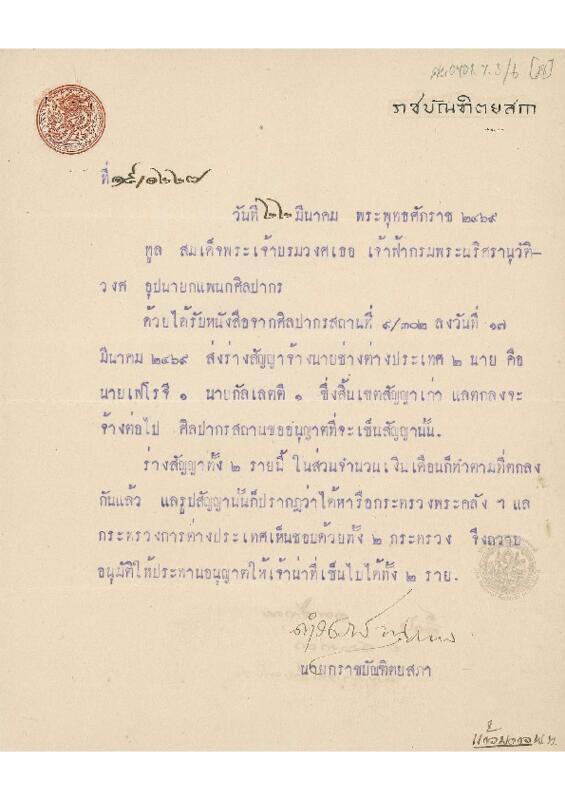 ราชบัณฑิตยสภา
ที่ ๑๕/๑๒๒๗
วันที่ ๒๒ มีนาคม พระพุทธศักราช ๒๔๖๙
ทูล สมเด็จพระเจ้าบรมวงศเธอ เจ้าฟ้ากรมพระนริศรานุวัติ-
วงศ อุปนายกแพนกศิลปากร
ด้วยได้รับหนังสือจากศิลปากรสถานที่ ๙/๓๐๒ ลงวันที่ ๑๗
มีนาคม ๒๔๖๙ ส่งร่างสัญญาจ้างนายช่างต่างประเทศ ๒ นาย คือ
นายเฟโรจี ๑ นายกัลเลตตี ๑ ซึ่งสิ้นเขตสัญญาเก่า แลตกลงจะ
จ้างต่อไป ศิลปากรสถานขออนุญาตที่จะเซ็นสัญญานั้น.
ร่างสัญญาทั้ง ๒ รายนี้ ในส่วนจำนวนเงินเดือนก็ทำตามที่ตกลง
กันแล้ว แลรูปสัญญานั้นก็ปรากฏว่าได้หารือกระทรวงพระคลัง ฯ แล
กระทรวงการต่างประเทศเห็นชอบด้วยทั้ง ๒ กระทรวง จึงถวาย
อนุมัติให้ประทานอนุญาตให้เจ้าน่าที่เซ็นไปได้ทั้ง ๒ ราย.
นายกราชบัณฑิตยสภา